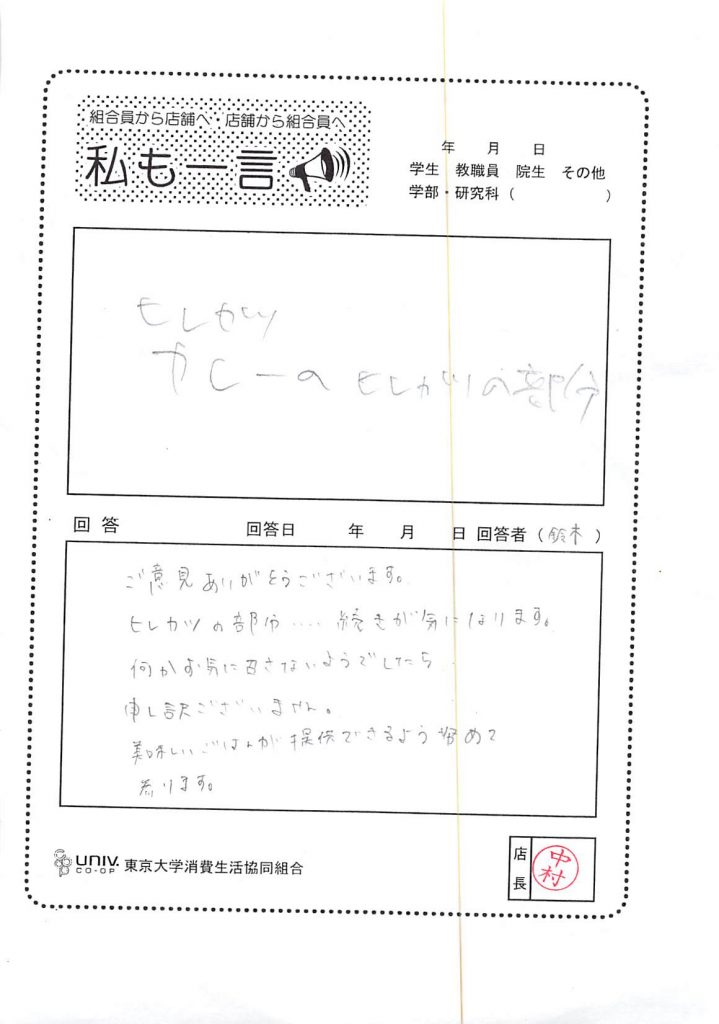 組合員から店舗へ・店舗から組合員へ
私も一言
年 月 日
学生 教職員 院生 その他
学部・研究科（ ）
ヒレカツ
カレーの ヒレカツの部分
回答 回答日 年 月 日 回答者（鈴木）
ご意見ありがとうございます。
ヒレカツの部分‥‥続きが気になります。
何かお気に召さないようでしたら
申し訳ございません。
美味しいごはんが提供できるよう努めて
参ります。
UNIV. CO-OP 東京大学消費生活協同組合
店長 中村